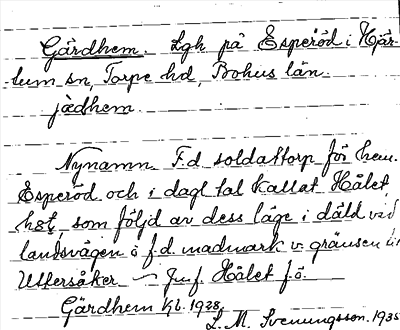 Gärdhem. Lgh på Esperöd i Hjär-
tum sn, Torpe hd, Bohus län.
jädhem
Nynamn. F.d. soldattorp för hem.
Esperöd och i dagl tal kallat Hålet
hst, som följd av dess läge i däld vid
landsvägen å f.d. madmark v. gränsen till
Uttersåker – Jmf. Hålet f.ö.
Gärdhem kb. 1928.
L. M. Svenungsson. 1935